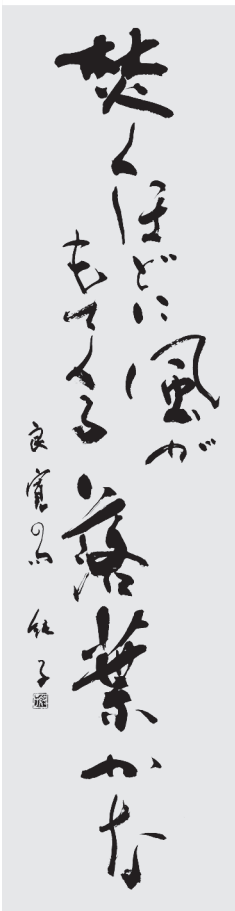 焚くほどに風が
もてくる落葉かな
良寛の句
子